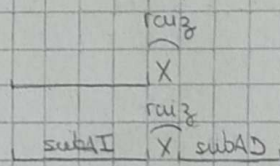 raiz
X
raiz
subAI X subAD